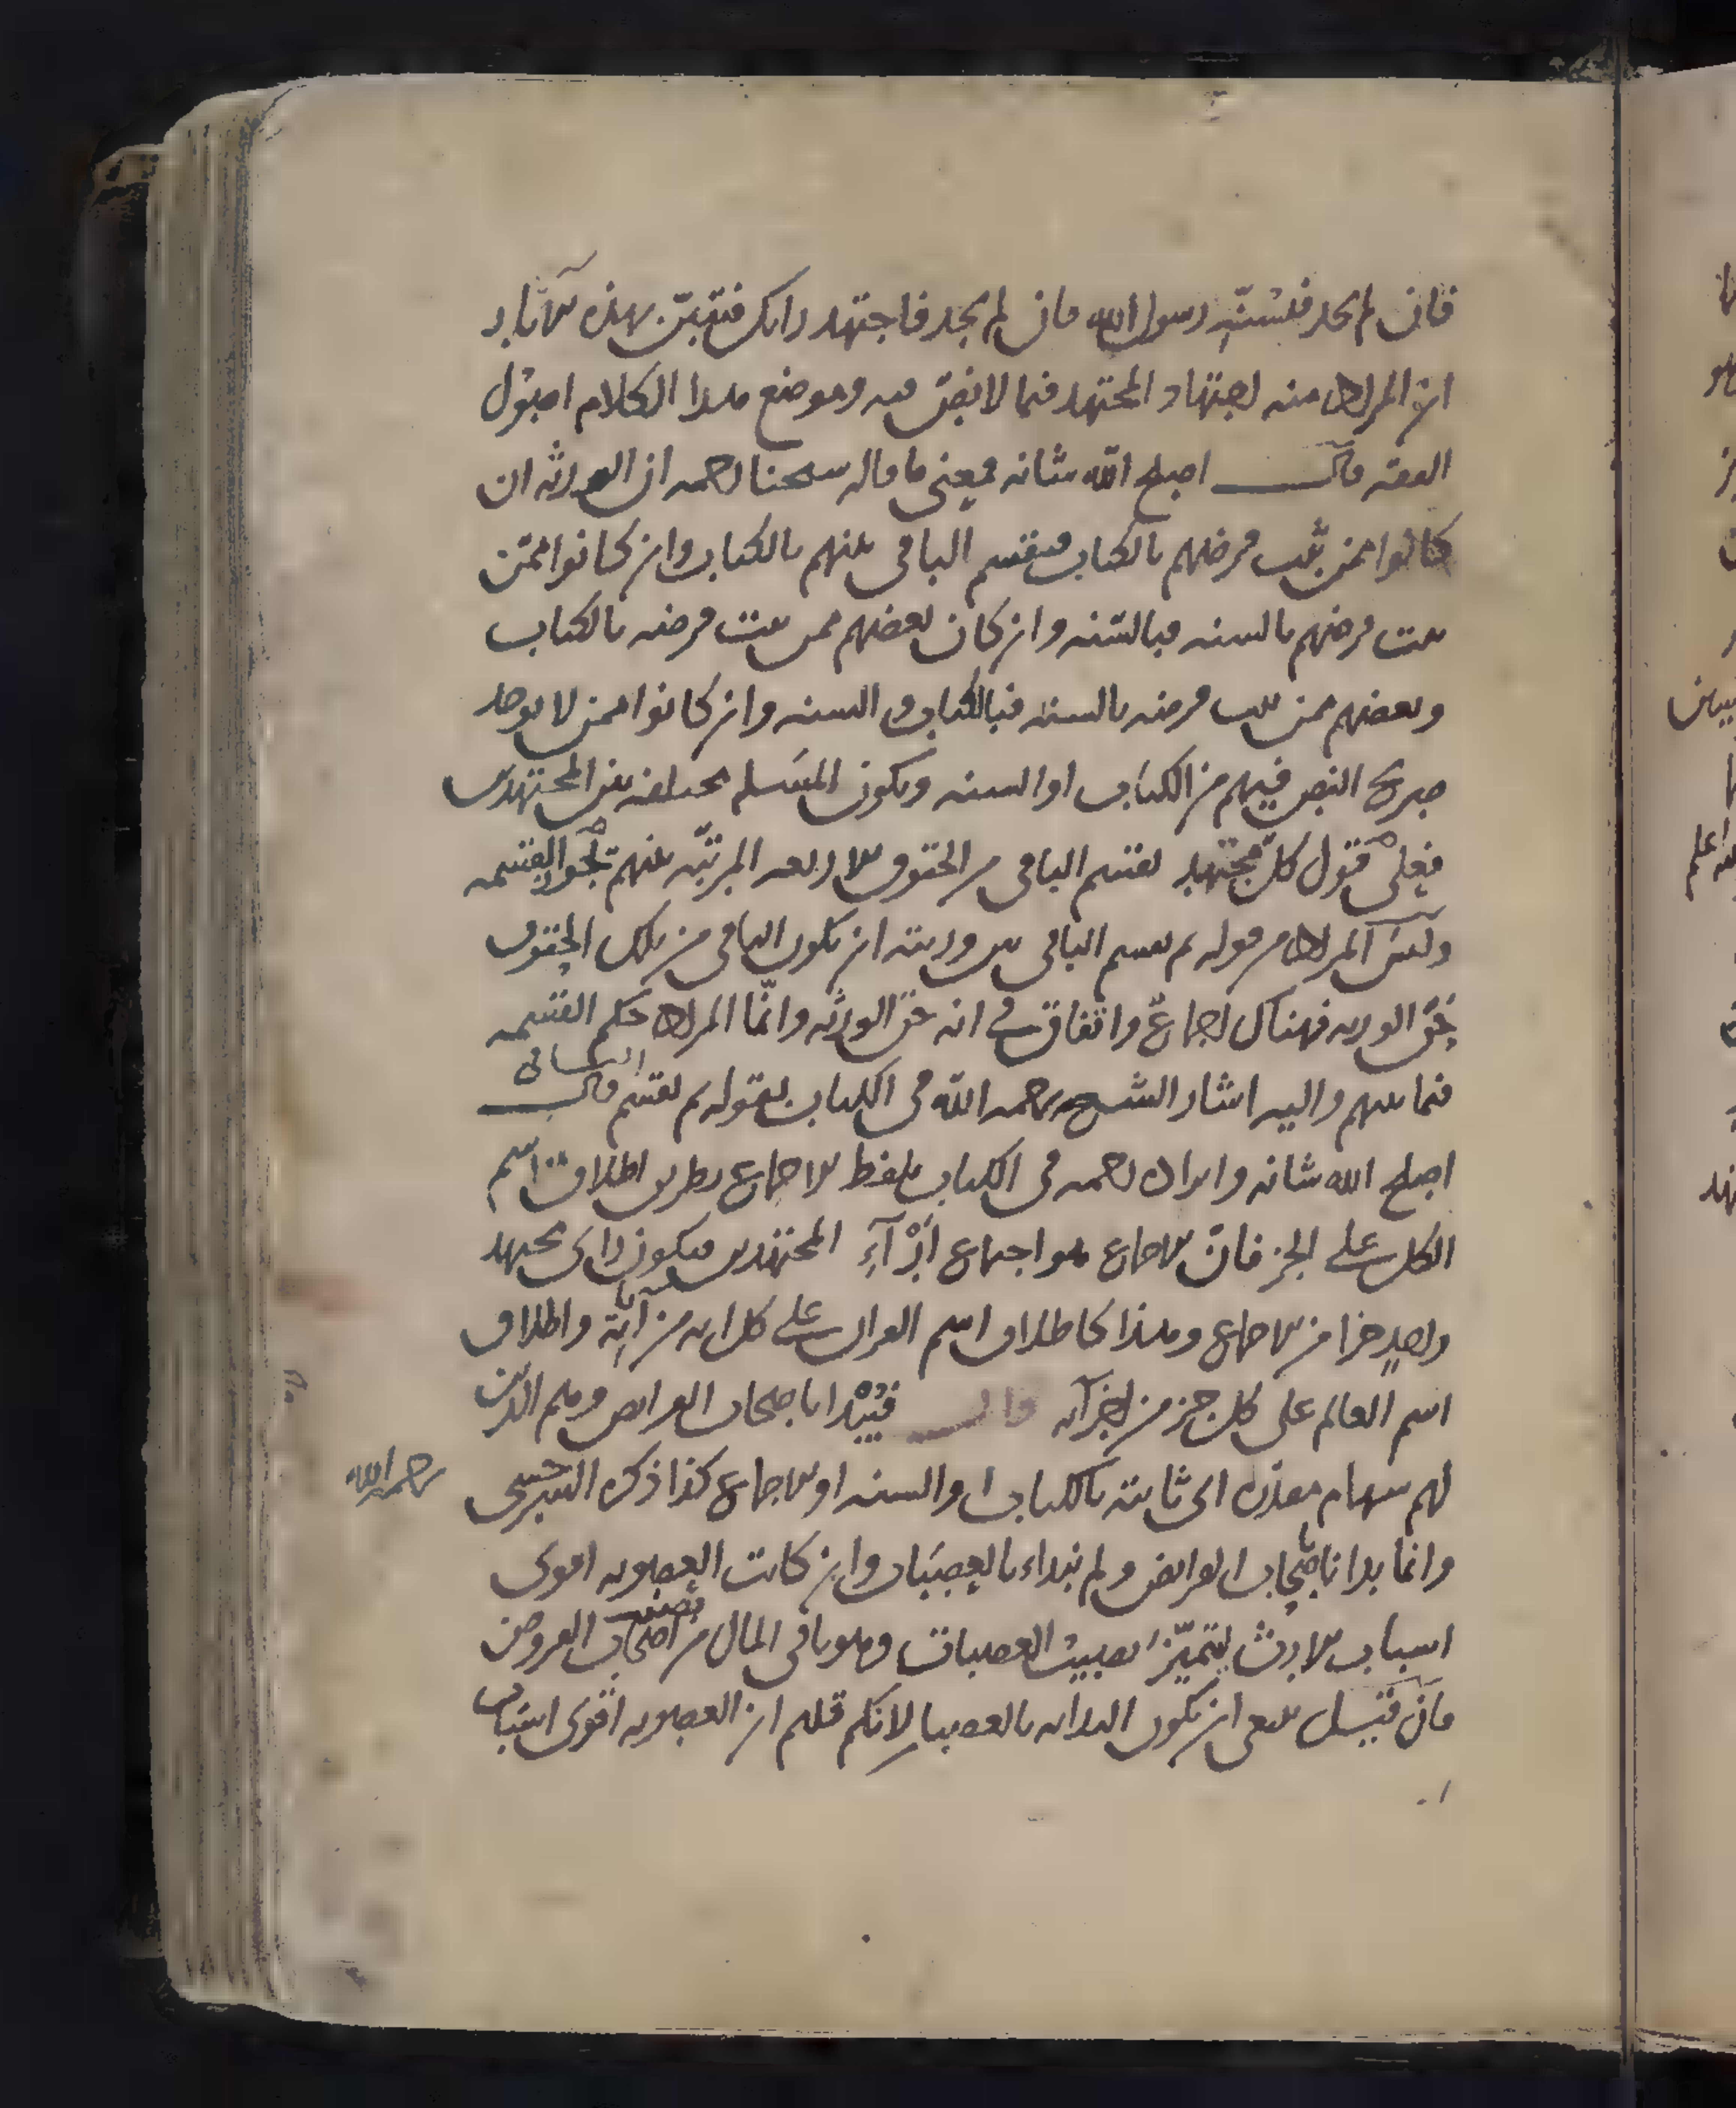 فان لم تجد فبسنّة رسول الله فان لم تجد فاجتهد رايك فتبيّن بهذه الآثار
ان المراد منه اجتهاد المجتهد فيما لا نص فيه وموضع هذا الكلام اصول
الفقه قال اصلح الله شانه فمعنى ما قاله شيخنا رحمه ان الورثة ان
كانوا ممن ثبت فرضهم بالكتاب فيقسم الباقي بينهم بالكتاب وان كانوا ممّن
ثبت فرضهم بالسنه فبالسّنه وان كان بعضهم ممن ثبت فرضه بالكتاب
وبعضهم ممن ثبت فرضه بالسنه فبالكتاب والسنه وان كانوا ممن لا يوجد
صريح النص فيهم من الكتاب او السنه ويكون المسَله مختلفه بين المجتهدين
فعلى قول كل مجتهد يقسم الباقي من الحقوق الاربعه المرتبّه بينهم القسمه
وليس المراد من قوله ثم يقسم الباقي بين ورثته ان يكون الباقي من تلك الحقوق
حق الورثه فهناك اجماع واتفاق في انه حق الورثه وانّما المراد حكم القسمه
فيما بينهم واليه اشار الشيخ رحمه الله في الكتاب بقوله ثم يقسم الباقي قال
اصلح الله شانه وايراده رحمه في الكتاب بلفظ الاجماع بطريق اطلاق اسم
الكل على الجز فان الاجماع هو اجتماع آراء المجتهدين فيكون راى مجتهد
واحد جزا من الاجماع وهذا كاطلاق اسم القران على كل ايه من آياته واطلاق
اسم العالم على كل جز من اجزآئه قال فيُبْدا باصحاب الفرايض وهم الذين
لهم سهام مقدره اى ثابته بالكتاب او السنه او الاجماع كذا ذكره السرخسى رحمه الله
وانما بدانا باصحاب الفرايض ولم نبداء بالعصبَات وان كانت العصوبه اقوى
اسباب الارث ليتميّز نصيب العصبات وهو باقى المال من نصيب اصحاب الفروض
فان قيل ينبغى ان يكون البدايه بالعصبات لانكم قلتم ان العصوبه اقوى اسباب